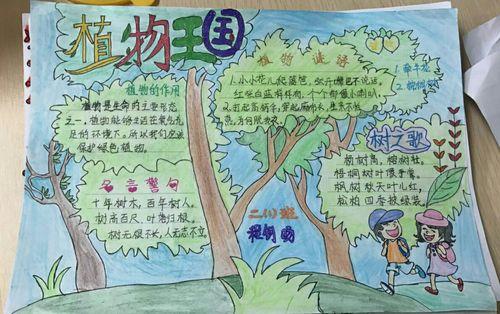 植物王国
植物的作用
植物是生命的主要形态
之一,植物能够适应氧气充
足的环境下。所以我们应该
保护绿色植物。
名言警句
十年树木,百年树人。
树高百尺、叶落归根。
树无根不长,人无志不立。
植物谜语
1.小小花儿爬篱笆,张开嘴巴不说话,
红张白蓝
个个都像小喇叭
2.
1.牵牛花
2.
树之歌
杨树高,榕树壮。
梧桐树叶像手掌。
枫树秋天叶儿红,
松柏四季披绿装。
二(1)班
程钢